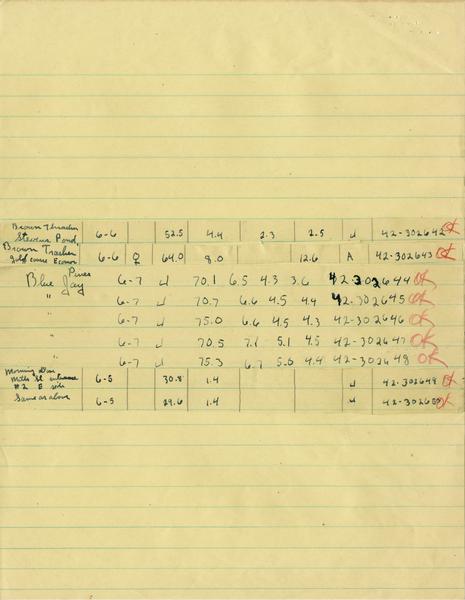 Brown Thrasher
Stevens Pond, 6-6 52.5 4.4 2.3 2.5 U 42-302642 OK
Brown Trasher
Golf course 6-6 ♀ 64.0 8.0 12.6 A 42-302643 OK
Pines
Blue Jay 6-7 U 70.1 6.5 4.3 3.6 42-302644 OK
" 6-7 U 70.7 6.6 4.5 4.4 42-302645 OK
" 6-7 U 75.0 6.6 4.5 4.3 42-302646 OK
" 6-7 U 70.5 7.1 5.1 4.5 42-302647 OK
6-7 U 75.3 6.7 5.0 4.4 42-302648 OK
Morning Dove
Mills St entrance 6-5 30.8 1.4 U 42-302649 OK
#2 E side
Same as above 6-5 29.6 1.4 U 42-302650 OK